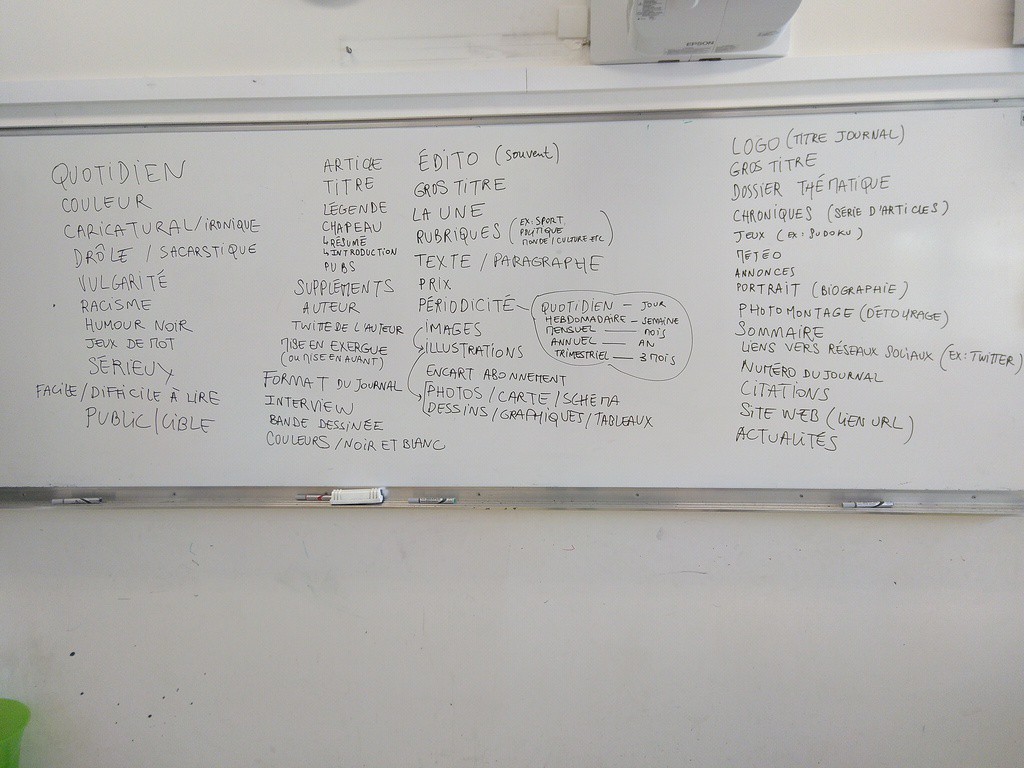 EPSON
QUOTIDIEN
COULEUR
CARICATURAL/iRONIQUE
DRÔLE / SACARSTIQUE
VULGARITÉ
RACISME
HUMOUR NOIR
JEUX DE MOT
SÉRIEUX
FACILE/DIFFICILE À LIRE
PUBLIC/CIBLE
ARTICLE
TITRE
LÉGENDE
CHAPEAU
↳ RÉSUMÉ
↳ INTRODUCTION
PUBS
SUPPLÉMENTS
AUTEUR
TWITE DE L'AUTEUR
MISE EN EXERGUE
(OU MISE EN AVANT)
FORMAT DU JOURNAL
INTERVIEW
BANDE DESSINÉE
COULEURS/NOIR ET BLANC
ÉDITO (souvent)
GROS TITRE
LA UNE
RUBRIQUES (EX: SPORT
POLITIQUE
MONDE/CULTURE ETC)
TEXTE / PARAGRAPHE
PRIX
PÉRIODICITÉ
QUOTIDIEN — JOUR
HEBDOMADAIRE — SEMAINE
MENSUEL — MOIS
ANNUEL — AN
TRIMESTRIEL — 3 MOIS
IMAGES
ILLUSTRATIONS
ENCART ABONNEMENT
PHOTOS/CARTE/SCHÉMA
DESSINS/GRAPHIQUES/TABLEAUX
LOGO (TITRE JOURNAL)
GROS TITRE
DOSSIER THÉMATIQUE
CHRONIQUES (SÉRIE D'ARTICLES)
JEUX (EX: SUDOKU)
METEO
ANNONCES
PORTRAIT (BIOGRAPHIE)
PHOTOMONTAGE (DÉTOURAGE)
SOMMAIRE
LIENS VERS RÉSEAUX SOCIAUX (EX: TWITTER)
NUMÉRO DU JOURNAL
CITATIONS
SITE WEB (LIEN URL)
ACTUALITÉS